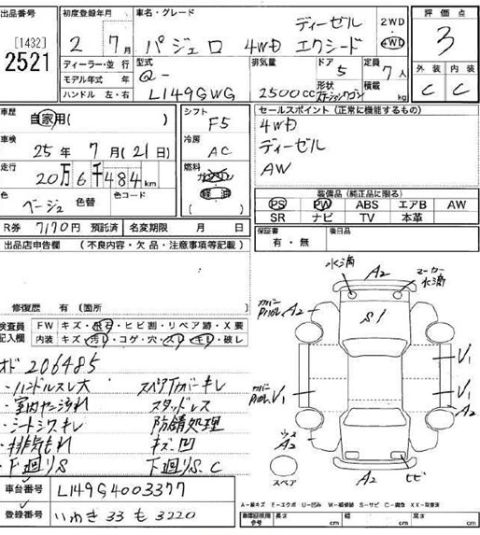 出品番号 初度登録年月 車名・グレード 評価点
[1432] 2521
2年 7月 パジェロ 4WD ディーゼル エクシード 2WD 4WD 3
ディーラー・並行 型式 排気量 ドア 定員 外装 内装
モデル年式 年 Q- 5 7人 C C
ハンドル 左・右 L149GWG 2500cc 形状 ステーションワゴン 積載 kg
車歴 自家用( ) シフト F5 セールスポイント(正常に機能するもの)
4WD
車検 25年 7月(21日) 冷房 AC ディーゼル
走行 20万6千484km 燃料 AW
色 ベージュ 色替 色コード 軽油 装備品(純正品に限る)
PS PW ABS エアB AW
SR ナビ TV 本革
R券 7170円 預託済 名変期限 月 日 保証書 有・無 後日品
出品店申告欄 (不良内容・欠品・注意事項等記載)
修復歴 有(箇所
検査員記入欄 FW キズ・飛石・ヒビ割・リペア跡・X要
内装 キズ・汚レ・コゲ・穴・スレ・キレ・破レ
オド 206485
・ハンドルスレ大 スペアカバーキレ
・室内ヤニ汚れ スタッドレス
・シートシワキレ 防錆処理
・排気もれ キズ凹
・下廻りS 下廻りS.C
水滴 A2 マーカー水滴
カバー A2 S1 A2
V1
カバー V1 V1
A2 A2
スペア A2 ヒビ
車台番号 L149G4003377
登録番号 いわき 33 も 3220
A-線キズ E-エクボ U-凹み W-補修跡 S-サビ C-腐食 XX-交換済
長さ cm 幅 cm 高さ cm